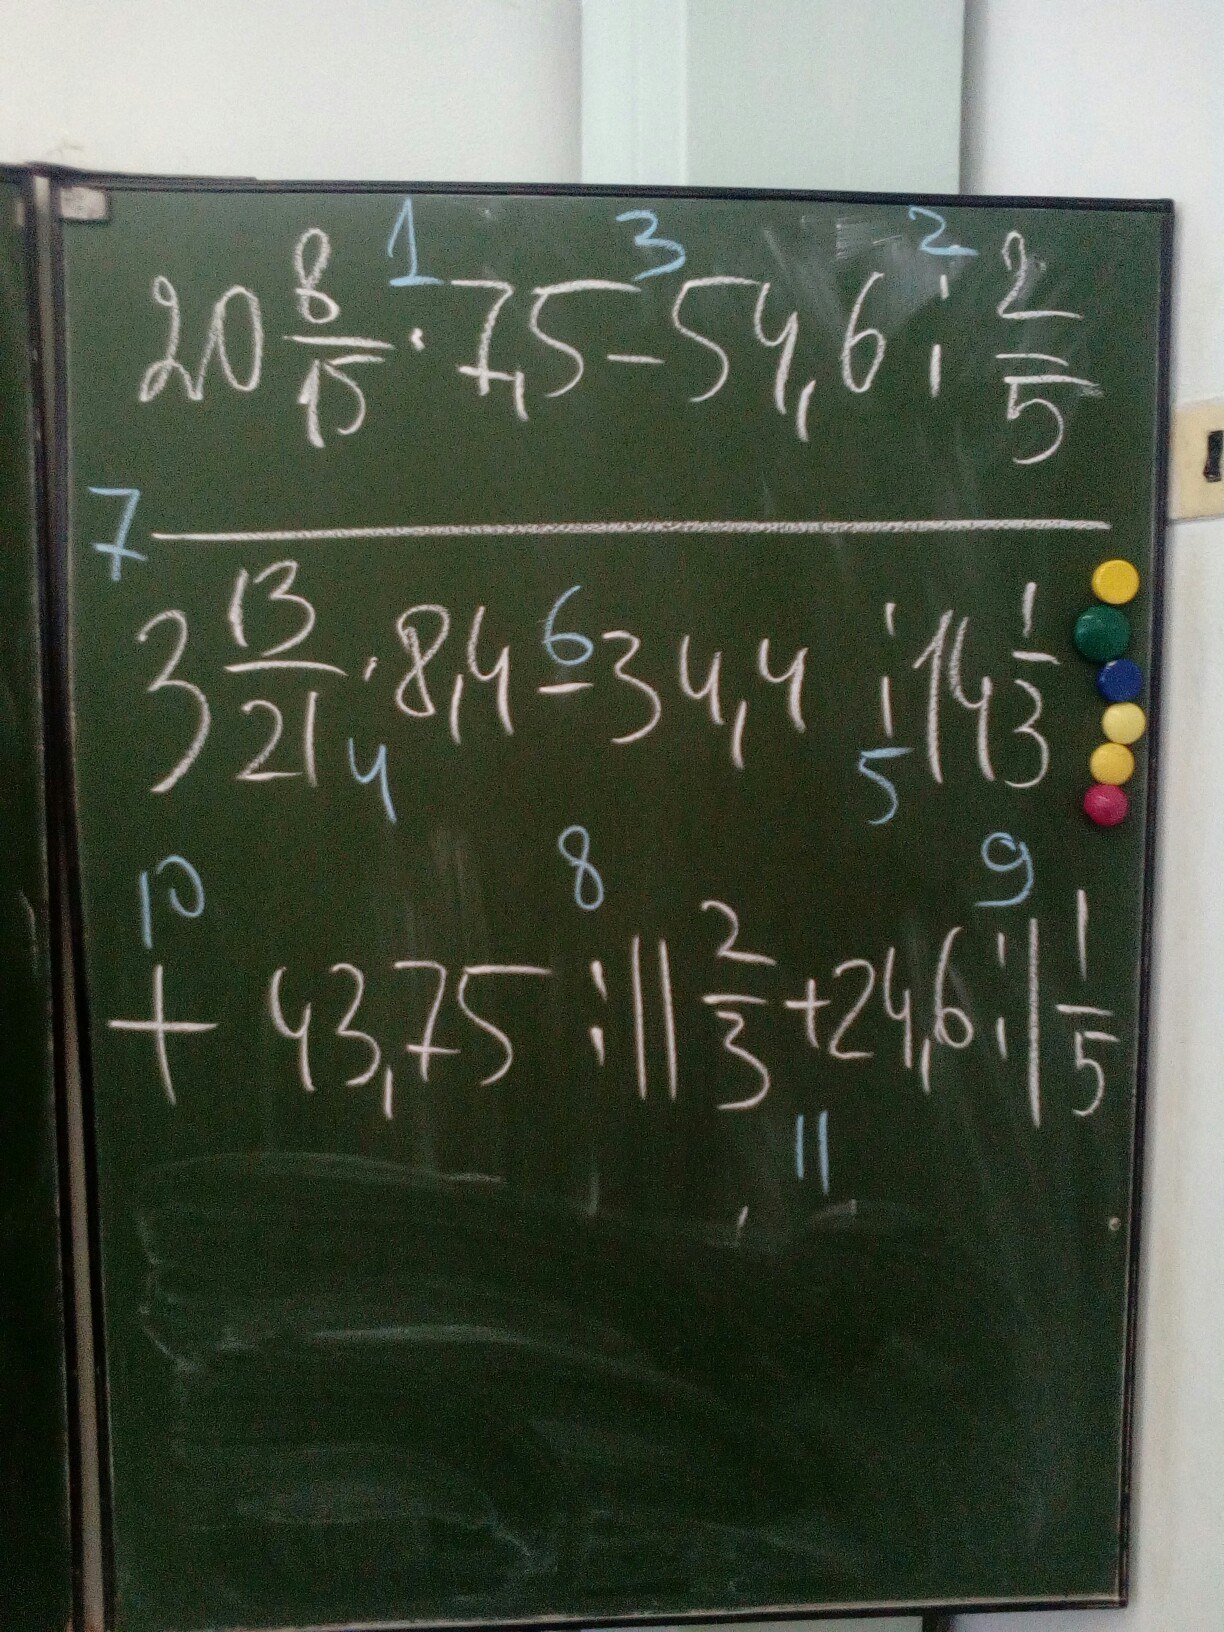 1 3 2
20 8/15 · 7,5 - 54,6 : 2/5
7
3 13/21 · 8,4 - 34,4 : 14 1/3
6
4 5
10 8 9
+ 43,75 : 11 2/3 + 24,6 : 1 1/5
11